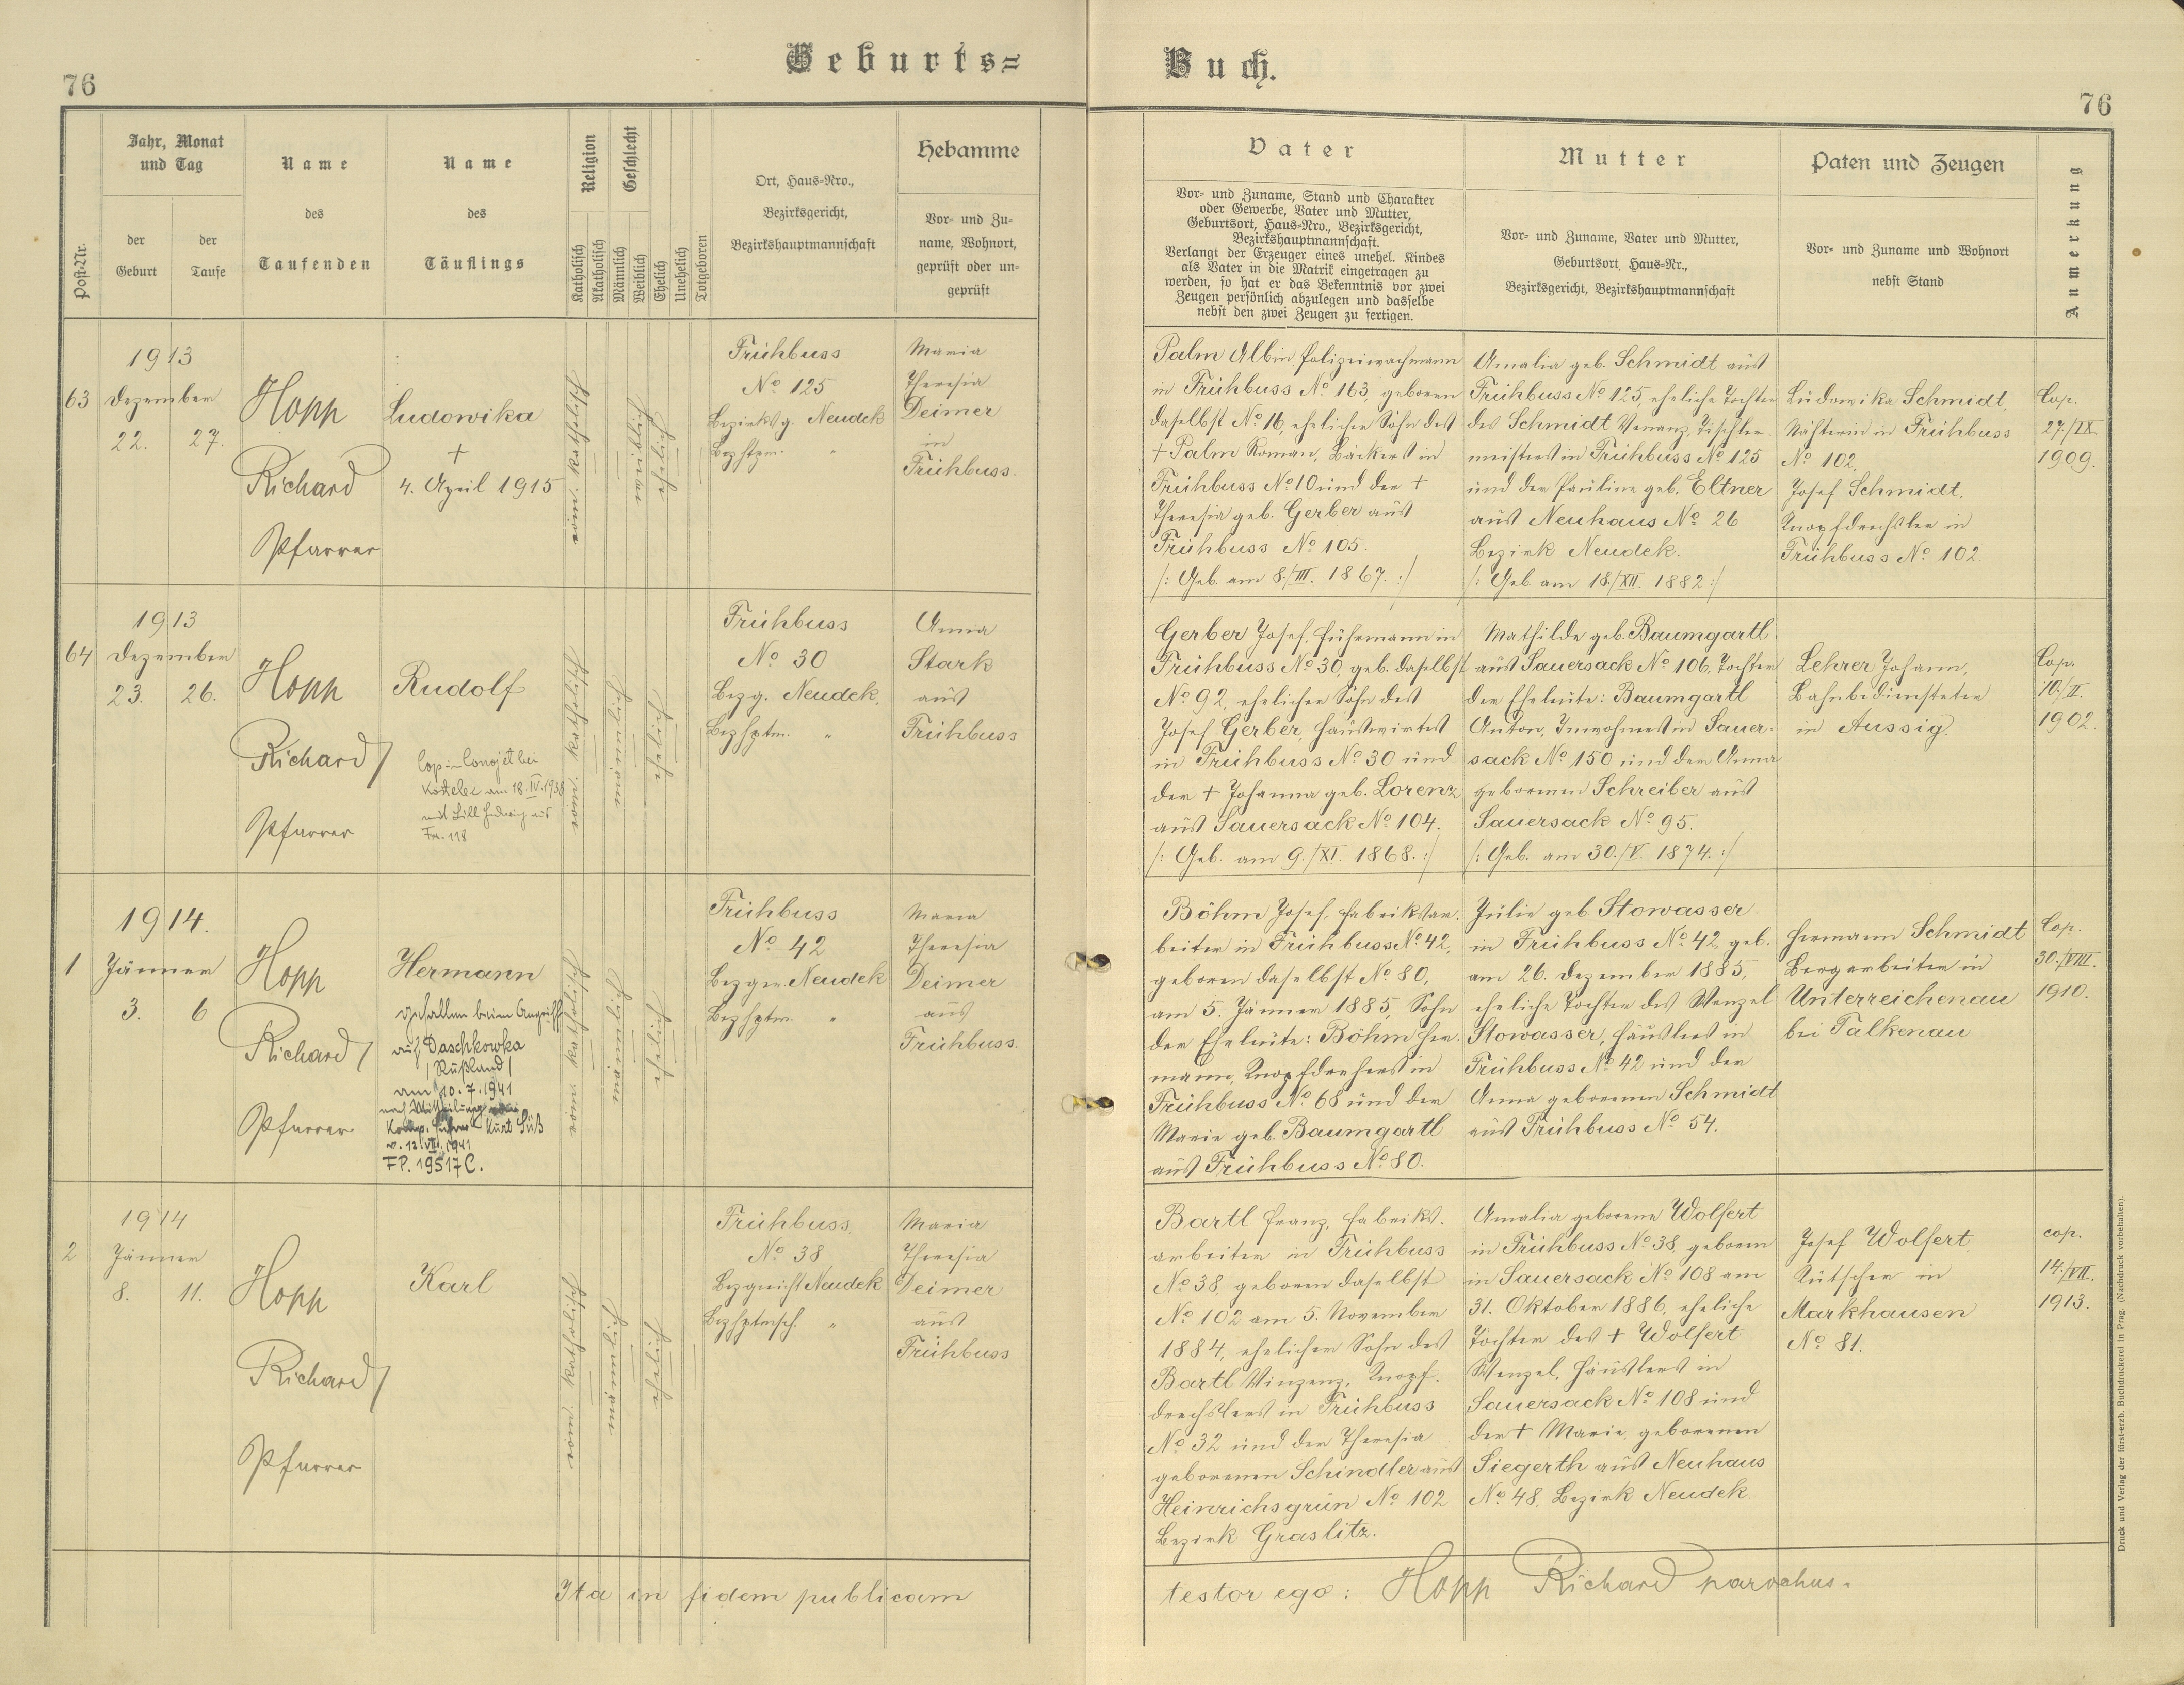 Geburts=
Buch.
76
76
Post-Nr.
Jahr, Monat
und Tag
der
Geburt
der
Taufe
Name
des
Taufenden
Name
des
Täuflings
Religion
Katholisch
Akatholisch
Geschlecht
Männlich
Weiblich
Ehelich
Unehelich
Totgeboren
Ort, Haus=Nro.,
Bezirksgericht,
Bezirkshauptmannschaft
Hebamme
Vor= und Zu=
name, Wohnort,
geprüft oder un=
geprüft
Vater
Vor= und Zuname, Stand und Charakter
oder Gewerbe, Vater und Mutter,
Geburtsort, Haus=Nro., Bezirksgericht,
Bezirkshauptmannschaft.
Verlangt der Erzeuger eines unehel. Kindes
als Vater in die Matrik eingetragen zu
werden, so hat er das Bekenntnis vor zwei
Zeugen persönlich abzulegen und dasselbe
nebst den zwei Zeugen zu fertigen.
Mutter
Vor= und Zuname, Vater und Mutter,
Geburtsort, Haus=Nr.,
Bezirksgericht, Bezirkshauptmannschaft
Paten und Zeugen
Vor= und Zuname und Wohnort
nebst Stand
Anmerkung
1913
63 Dezember
22. 27.
Hopp
Richard
Pfarrer
Ludowika
+
4. April 1915
röm. katholisch
weiblich
ehelich
Frühbuss
No 125
Bezirksg. Neudek
Bezhptm. "
Maria
Theresia
Deimer
in
Frühbuss.
Palm Albin Polizeiwachmann
in Frühbuss No 163, geboren
daselbst No 16, ehelicher Sohn des
+ Palm Roman, Bäckers in
Frühbuss No 10 und der +
Theresia geb. Gerber aus
Frühbuss No 105.
/: Geb. am 8./III. 1867. :/
Amalia geb. Schmidt aus
Frühbuss No 125, eheliche Tochter
des Schmidt Venanz, Tischler=
meisters in Frühbuss No 125
und der Pauline geb. Eltner
aus Neuhaus No 26
Bezirk Neudek.
/: Geb am 18./XII. 1882 :/
Ludowika Schmidt,
Nähterin in Frühbuss
No 102,
Josef Schmidt,
Knopfdrechsler in
Frühbuss No 102.
Cop.
27./IX.
1909.
1913
64 Dezember
23. 26.
Hopp
Richard
Pfarrer
Rudolf
Kostelec am 18.IV.1938
Fr. 118
röm. katholisch
männlich
ehelich
Frühbuss
No 30
Bezg. Neudek,
Bezhptm. "
Anna
Stark
aus
Frühbuss
Gerber Josef, Fuhrmann in
Frühbuss No 30, geb. daselbst
No 92, ehelicher Sohn des
Josef Gerber, Hauswirtes
in Frühbuss No 30 und
der + Johanna geb. Lorenz
aus Sauersack No 104.
/: Geb. am 9./XI. 1868. :/
Mathilde geb. Baumgartl
aus Sauersack No 106, Tochter
der Eheleute: Baumgartl
Anton, Inwohners in Sauer=
sack No 150 und der Anna
geborenen Schreiber aus
Sauersack No 95.
/: Geb. am 30./V. 1874. :/
Lehrer Johann,
Bahnbediensteter
in Aussig.
Cop.
10./II.
1902.
1914.
1 Jänner
3. 6
Hopp
Richard
Pfarrer
Hermann
gefallen beim Angriff
auf Daschkowka
/Rußland/
am 10.7.1941
nach Mitteilung
Komp. Führer Kurt Süß
v. 12.VII.1941
F.P. 19517 C.
röm. katholisch
männlich
ehelich
Frühbuss
No 42
Bezger. Neudek
Bezhptm. "
Maria
Theresia
Deimer
aus
Frühbuss.
Böhm Josef, Fabriksar=
beiter in Frühbuss No 42,
geboren daselbst No 80,
am 5. Jänner 1885, Sohn
der Eheleute: Böhm Her=
mann, Knopfdrehers in
Frühbuss No 68 und der
Marie geb. Baumgartl
aus Frühbuss No 80.
Julie geb. Stowasser
in Frühbuss No 42, geb.
am 26. Dezember 1885,
eheliche Tochter des Wenzel
Stowasser, Häuslers in
Frühbuss No 42 und der
Anna geborenen Schmidt
aus Frühbuss No 54.
Hermann Schmidt
Bergarbeiter in
Unterreichenau
bei Falkenau
Cop.
30./VIII.
1910.
1914
2 Jänner
8. 11.
Hopp
Richard
Pfarrer
Karl
röm. katholisch
männlich
ehelich
Frühbuss
No 38
Bezgericht Neudek
Bezhptmsch. "
Maria
Theresia
Deimer
aus
Frühbuss
Bartl Franz, Fabriks=
arbeiter in Frühbuss
No 38, geboren daselbst
No 102 am 5. November
1884, ehelicher Sohn des
Bartl Vinzenz, Knopf=
drechslers in Frühbuss
No 32 und der Theresia
geborenen Schindler aus
Heinrichsgrün No 102
Bezirk Graslitz.
Amalia geborene Wolfert
in Frühbuss No 38, geboren
in Sauersack No 108 am
31. Oktober 1886, eheliche
Tochter des + Wolfert
Wenzel, Häuslers in
Sauersack No 108 und
der + Marie, geborenen
Siegerth aus Neuhaus
No 48, Bezirk Neudek
Josef Wolfert,
Kutscher in
Markhausen
No 81.
cop.
14./VII.
1913.
Ita in fidem publicam
testor ego: Hopp Richard parochus.
Druck und Verlag der fürst-erzb. Buchdruckerei in Prag. (Nachdruck vorbehalten).